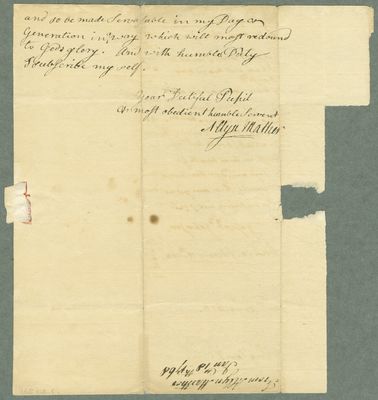 and so be made Servasable in my Day &
Generation in yt way which will most redound
to Gods glory. And with humble Duty
I subscribe my self.
Your Dutiful Pupil
& most obedient humble Servent
Allyn Mather
From Allyn Mather
Jan 18th 1768